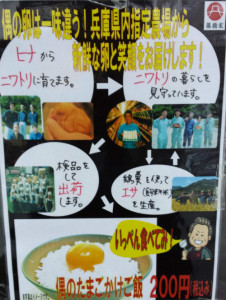 偶の卵は一味違う！兵庫県内指定農場から
新鮮な卵と笑顔をお届けします！
ヒナから
ニワトリに育てます。
ニワトリの暮らしを
見守っています。
検品をして
出荷
します。
鶏糞を使って
エサ(飼料米)
を生産。
いっぺん食べてみ！
偶のたまごかけご飯 200円(税込み)